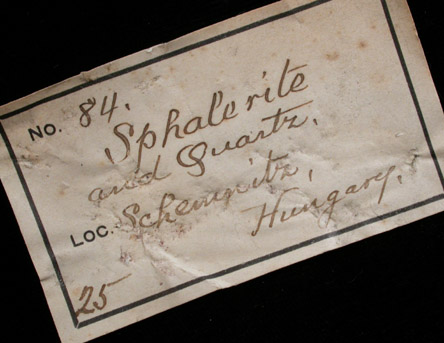 No. 84.
Sphalerite
and Quartz.
Loc. Schemnitz,
Hungary.
25